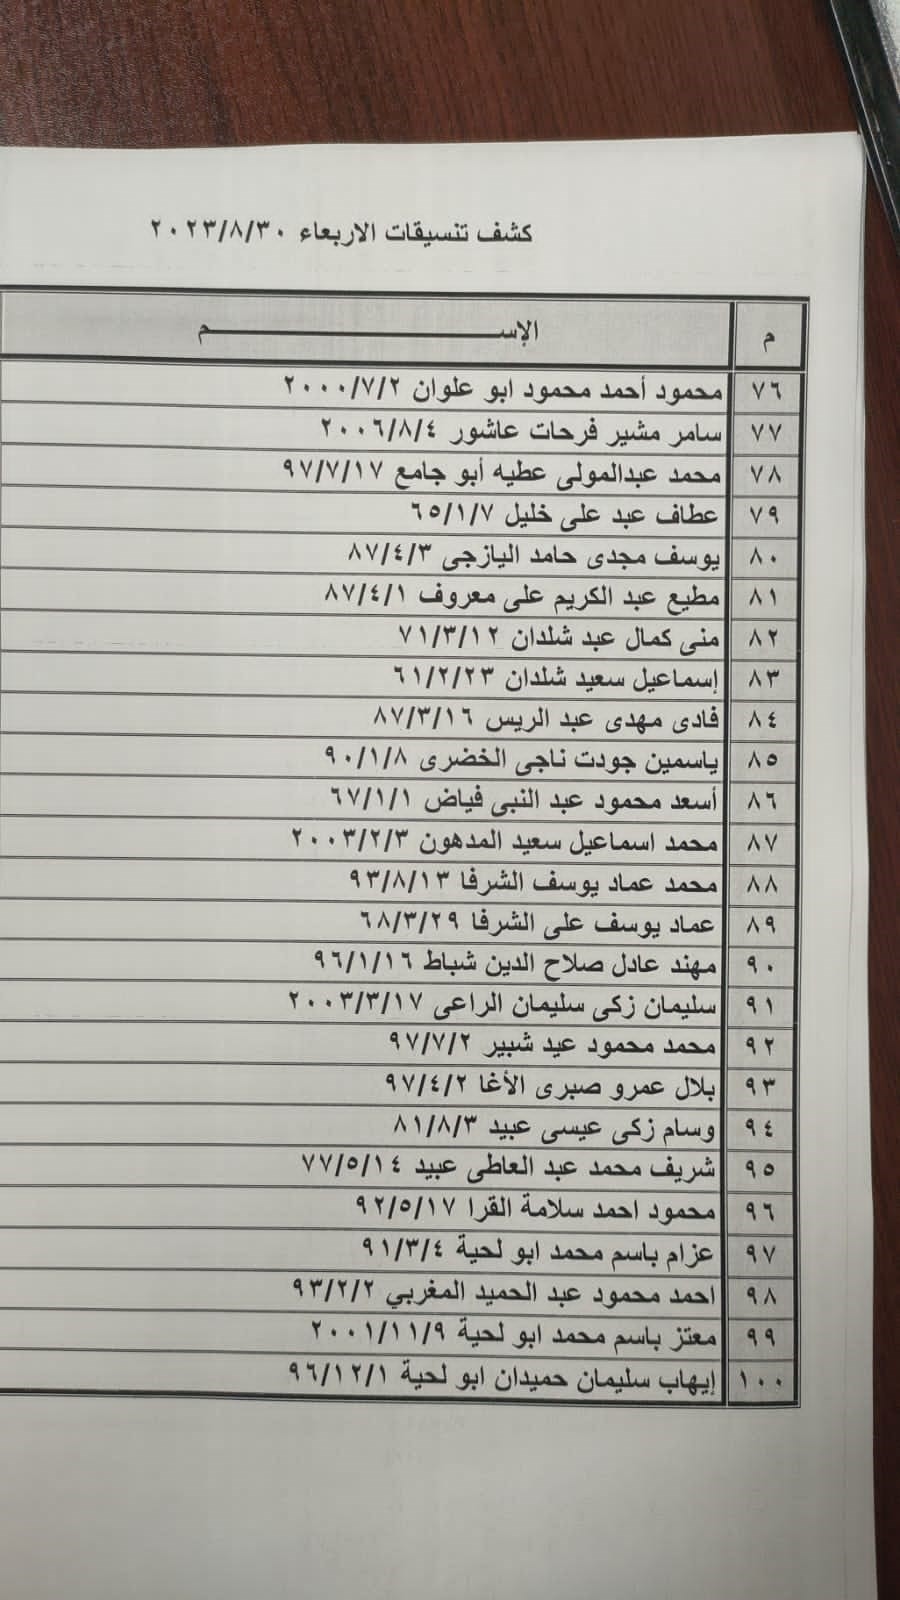 كشف تنسيقات الاربعاء ٢٠٢٣/٨/٣٠
م الإســـــــــــــــــــــم
٧٦ محمود أحمد محمود ابو علوان ٢٠٠٠/٧/٢
٧٧ سامر مشير فرحات عاشور ٢٠٠٦/٨/٤
٧٨ محمد عبدالمولى عطيه أبو جامع ٩٧/٧/١٧
٧٩ عطاف عبد على خليل ٦٥/١/٧
٨٠ يوسف مجدى حامد اليازجى ٨٧/٤/٣
٨١ مطيع عبد الكريم على معروف ٨٧/٤/١
٨٢ منى كمال عبد شلدان ٧١/٣/١٢
٨٣ إسماعيل سعيد شلدان ٦١/٢/٢٣
٨٤ فادى مهدى عبد الريس ٨٧/٣/١٦
٨٥ ياسمين جودت ناجى الخضرى ٩٠/١/٨
٨٦ أسعد محمود عبد النبى فياض ٦٧/١/١
٨٧ محمد اسماعيل سعيد المدهون ٢٠٠٣/٢/٣
٨٨ محمد عماد يوسف الشرفا ٩٣/٨/١٣
٨٩ عماد يوسف على الشرفا ٦٨/٣/٢٩
٩٠ مهند عادل صلاح الدين شباط ٩٦/١/١٦
٩١ سليمان زكى سليمان الراعى ٢٠٠٣/٣/١٧
٩٢ محمد محمود عيد شبير ٩٧/٧/٢
٩٣ بلال عمرو صبرى الأغا ٩٧/٤/٢
٩٤ وسام زكى عيسى عبيد ٨١/٨/٣
٩٥ شريف محمد عبد العاطى عبيد ٧٧/٥/١٤
٩٦ محمود احمد سلامة القرا ٩٢/٥/١٧
٩٧ عزام باسم محمد ابو لحية ٩١/٣/٤
٩٨ احمد محمود عبد الحميد المغربي ٩٣/٢/٢
٩٩ معتز باسم محمد ابو لحية ٢٠٠١/١١/٩
١٠٠ إيهاب سليمان حميدان ابو لحية ٩٦/١٢/١